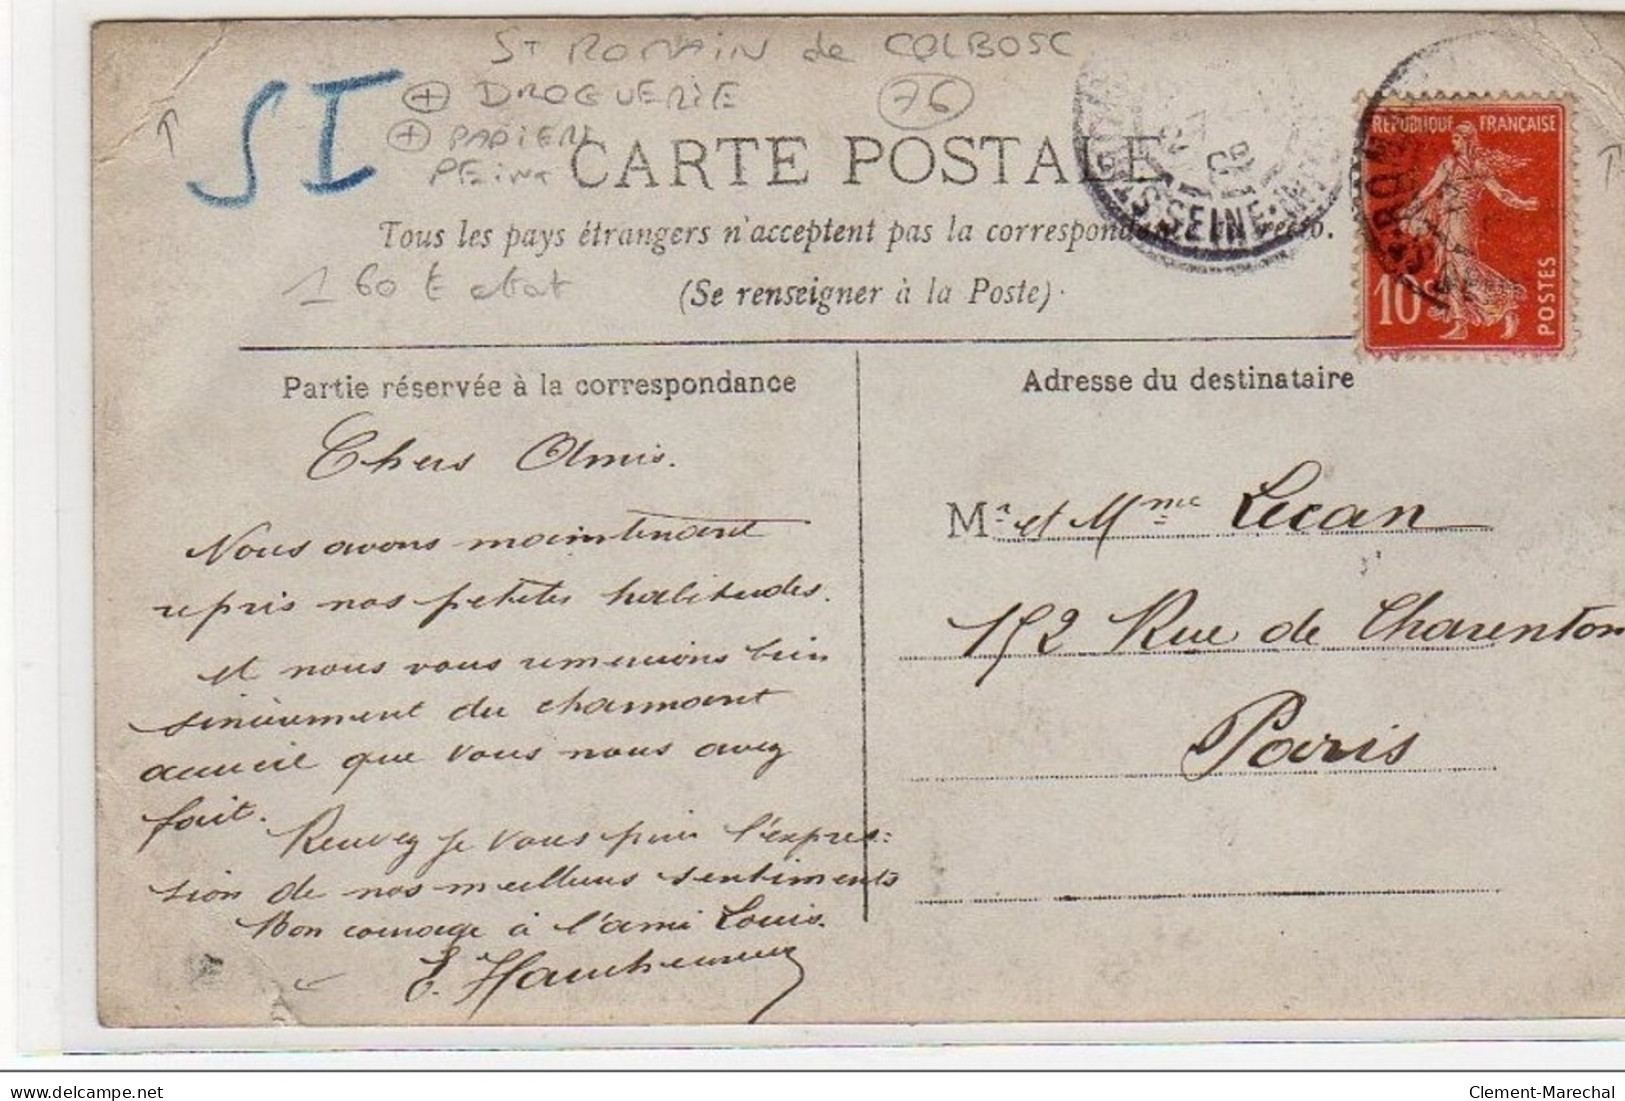 St ROMAIN de COLBOSC
SI
+ DROGUERIE
76
+ PAPIER
PEINT
CARTE POSTALE
Tous les pays étrangers n'acceptent pas la correspondance au recto.
(Se renseigner à la Poste)
REPUBLIQUE FRANÇAISE
10c
POSTES
SEINE-INF
Partie réservée à la correspondance
Adresse du destinataire
Chers Amis.
Nous avons maintenant
repris nos petites habitudes.
et nous vous remercions bien
sincèrement du charmant
accueil que vous nous avez
fait.
Recevez je vous prie l'expres=
sion de nos meilleurs sentiments
Bon courage à l'ami Louis.
E.
Mr et Mme Lecan
152 Rue de Charenton
Paris
delcampe.net
Clement-Marechal